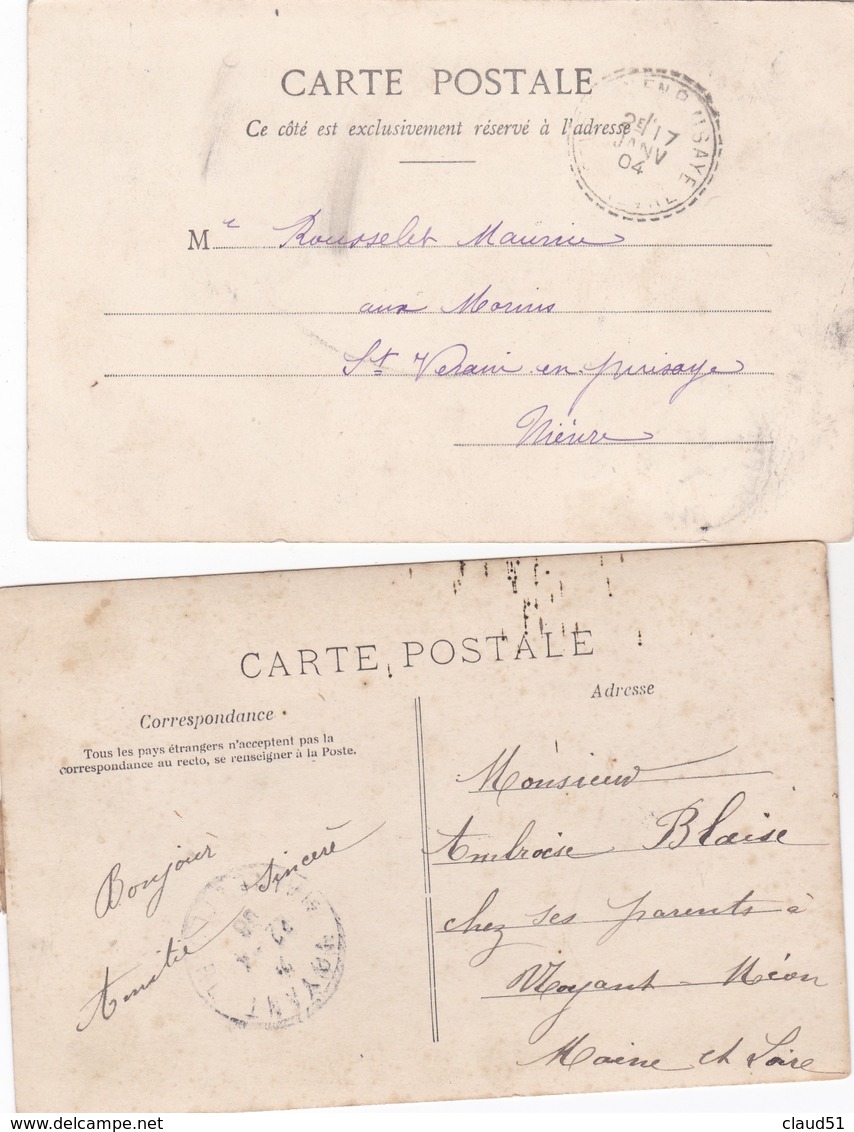 CARTE POSTALE
Ce côté est exclusivement réservé à l'adresse
EN PUISAYE
2E/17
JANV
04
Mr Rousselet Maurice
aux Morins
St Verain en puisaye
Nièvre
CARTE POSTALE
Correspondance
Adresse
Tous les pays étrangers n'acceptent pas la
correspondance au recto, se renseigner à la Poste.
Bonjour
Amitié sincère
NOYANT
Monsieur
Ambroise Blaise
chez ses parents à
Noyant - Méon
Maine et Loire
claud51